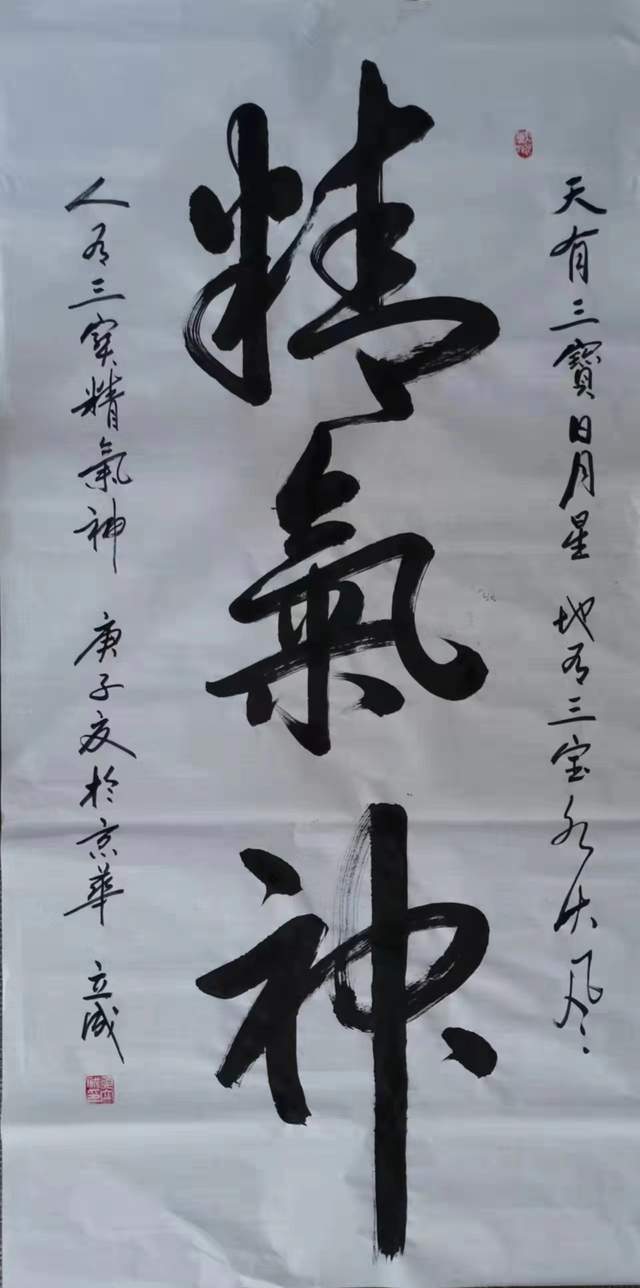 天有三寶日月星 地有三宝水火风
精氣神
人有三宝精氣神 庚子夏於京華 立成